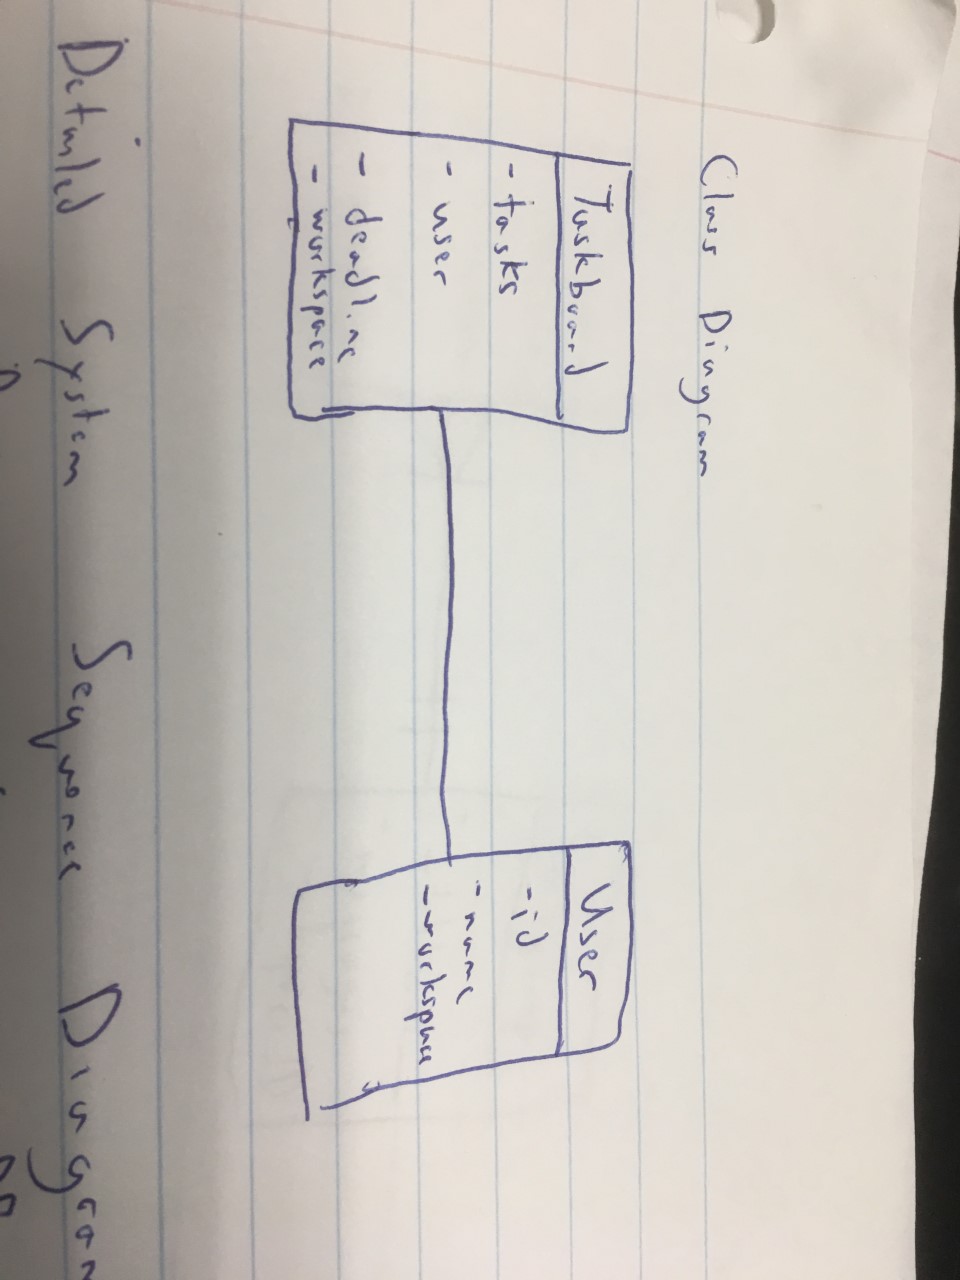 Class Diagram
Taskboard
- tasks
- user
- deadline
- workspace
User
- id
- name
- workspace
Detailed System Sequence Diagram